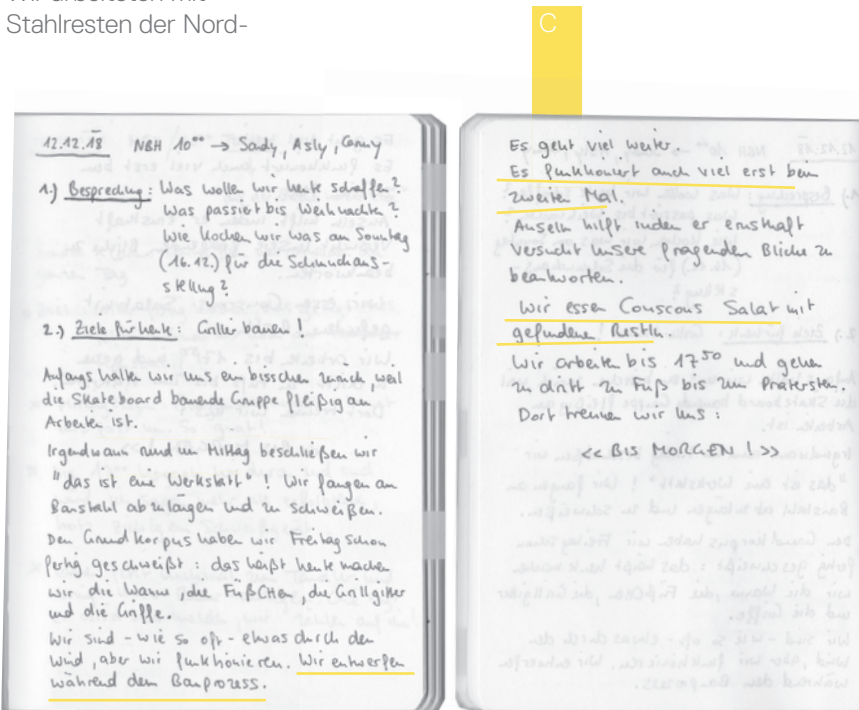 Stahlresten der Nord-
C
12.12.18 NBH 10⁰⁰ → Sady, Asly, Conny
1.) Besprechung: Was wollen wir heute schaffen?
Was passiert bis Weihnachten?
Wie kochen wir was am Sonntag
(16.12.) für die Schmuckaus-
stellung?
2.) Ziele für heute: Griller bauen!
Anfangs halten wir uns ein bisschen zurück, weil
die Skateboard bauende Gruppe fleißig am
Arbeiten ist.
Irgendwann rund um Mittag beschließen wir
"das ist eine Werkstatt"! Wir fangen an
Baustahl abzulängen und zu schweißen.
Den Grundkorpus haben wir Freitag schon
fertig geschweißt: das heißt heute machen
wir die Wanne, die FüßCHen, die Grillgitter
und die Griffe.
Wir sind - wie so oft - etwas durch den
Wind, aber wir funktionieren. Wir entwerfen
während dem Bauprozess.
Es geht viel weiter.
Es funktioniert auch viel erst beim
zweiten Mal.
Anselm hilft indem er ernsthaft
versucht unsere fragenden Blicke zu
beantworten.
Wir essen Couscous Salat mit
gefundenen Resteln.
Wir arbeiten bis 17⁵⁰ und gehen
zu dritt zu Fuß bis zum Praterstern.
Dort trennen wir uns:
<< BIS MORGEN! >>